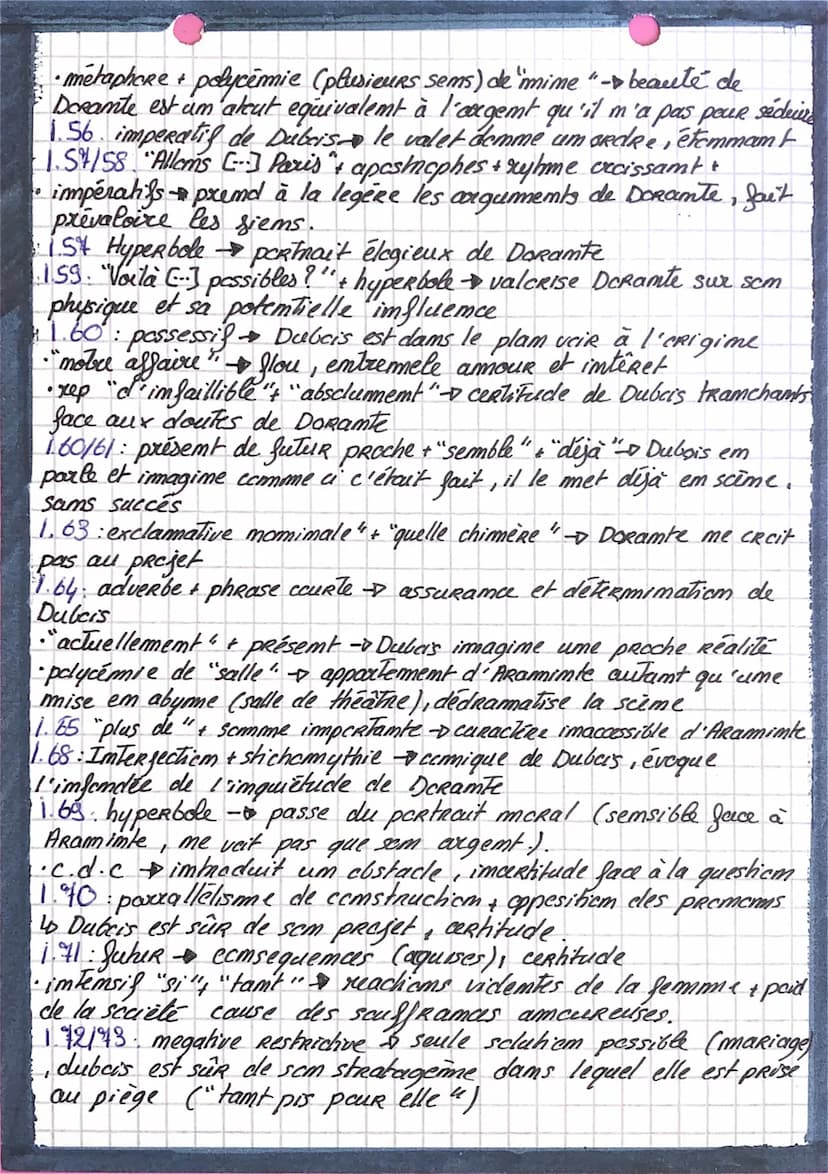 · métaphore + polycémie (plusieurs sens) de "mine" → beauté de
Dorante est un atout équivalent à l'argent qu'il n'a pas pour séduire
l.56. imperatif de Dubois → le valet donne un ordre, étonnant
l.57/58. "Allons [...] Paris" + apostrophes + rythme croissant +
· impératifs → prend à la legère les arguments de Dorante, fait
prévaloire les siens.
l.57 Hyperbole → portrait élogieux de Dorante
l.59. "Voilà [...] possibles ?" + hyperbole → valorise Dorante sur son
physique et sa potentielle influence
l.60 : possessif → Dubois est dans le plan voir à l'origine
· "notre affaire" → flou, entremele amour et intêret
· rep "d'infaillible" + "absolument" → certitude de Dubois tranchants
face aux doutes de Dorante
l.60/61 : présent de futur proche + "semble" + "déjà" → Dubois en
parle et imagine comme ci c'était fait, il le met déjà en scène.
sans succés
l.63 : exclamative nominale" + "quelle chimère" → Dorante ne croit
pas au projet
l.64 : adverbe + phrase courte → assurance et détermination de
Dubois
· "actuellement" + présent → Dubois imagine une proche réalité
· polycémie de "salle" → appartement d'Araminte autant qu'une
mise en abyme (salle de théâtre), dédramatise la scène
l.65 "plus de" + somme importante → caractère inacessible d'Araminte
l.68 : Interjection + stichomythie → comique de Dubois, évoque
l'infondée de l'inquiétude de Dorante
l.69. hyperbole → passe du portrait moral (sensible face à
Araminte, ne voit pas que son argent.).
· c.d.c → introduit un obstacle, incertitude face à la question
l.70 : parrallélisme de construction + opposition des pronoms
↳ Dubois est sûr de son projet, certitude.
l.71 : futur → consequences (aquises), certitude
· intensif "si" + "tant" → reactions videntes de la femme + poid
de la société cause des souffrances amoureuses.
l.72/73 : negative restrictive → seule solution possible (mariage)
, dubois est sûr de son stratagème dans lequel elle est prise
au piège ("tant pis pour elle")